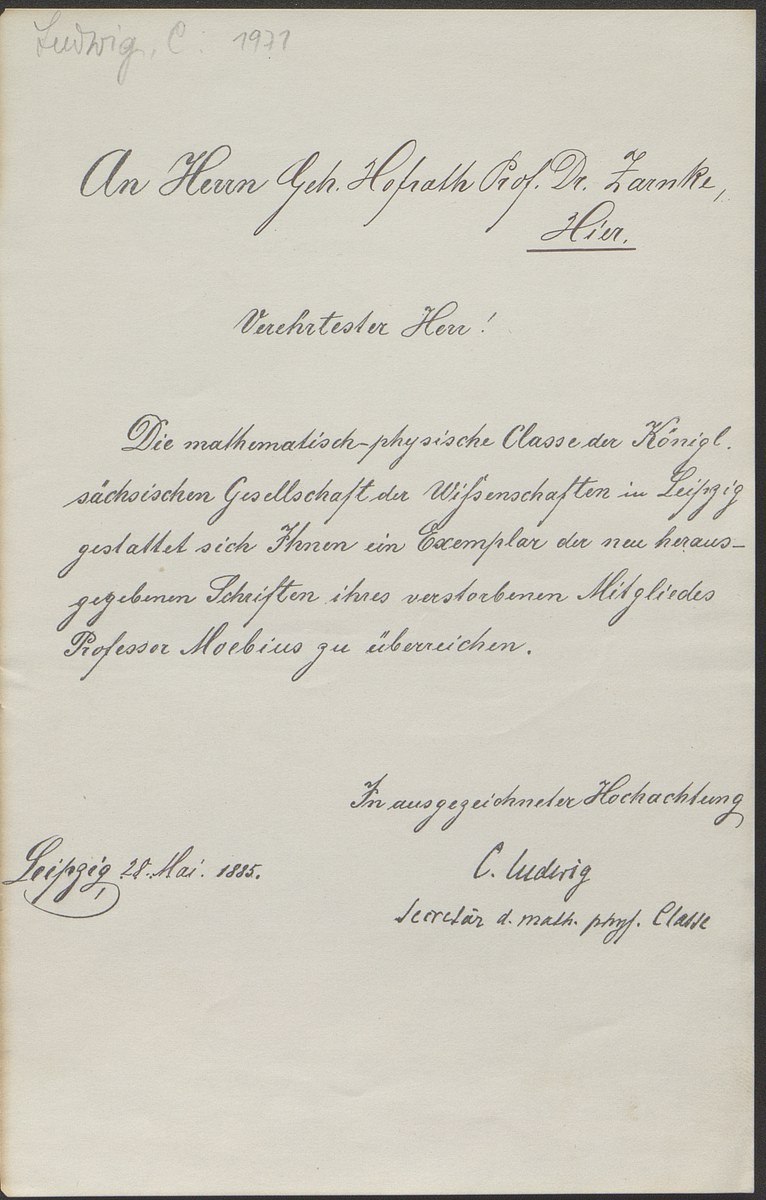 Ludwig, C. 1971
An Herrn Geh. Hofrath Prof. Dr. Zarnke,
Hier.
Verehrtester Herr!
Die mathematisch-physische Classe der Königl.
sächsischen Gesellschaft der Wissenschaften in Leipzig
gestattet sich Ihnen ein Exemplar der neu heraus-
gegebenen Schriften ihres verstorbenen Mitgliedes
Professor Moebius zu überreichen.
In ausgezeichneter Hochachtung
Leipzig, 28. Mai. 1885.
C. Ludwig
Secretär d. math. phys. Classe